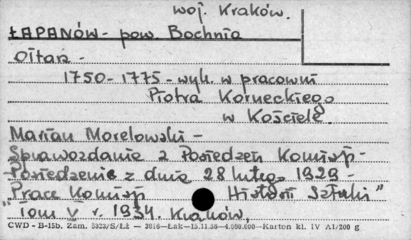 woj. Kraków.
ŁAPANÓW - pow. Bochnia
Ołtarz -
1750-1775 - wyk. w pracowni
Piotra Korneckiego
w Kościele.
Marian Morelowski -
Sprawozdanie z Posiedzeń Komisji -
Posiedzenie z dnia 28 lutego 1929 -
"Prace Komisji Historii Sztuki"
Tom V r. 1934. Kraków,
CWD - B-15b. Zam. 5823/S/Łż — 3616—Łak—15.11.58—4.000.000—Karton kl. IV A1/200 g